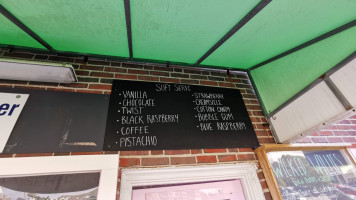 er
SOFT SERVE
• VANILLA
• CHOCOLATE
• TWIST
• BLACK RASPBERRY
• COFFEE
• PISTACHIO
• STRAWBERRY
• CREAMSICLE
• COTTON CANDY
• BUBBLE GUM
• BLUE RASPBERRY